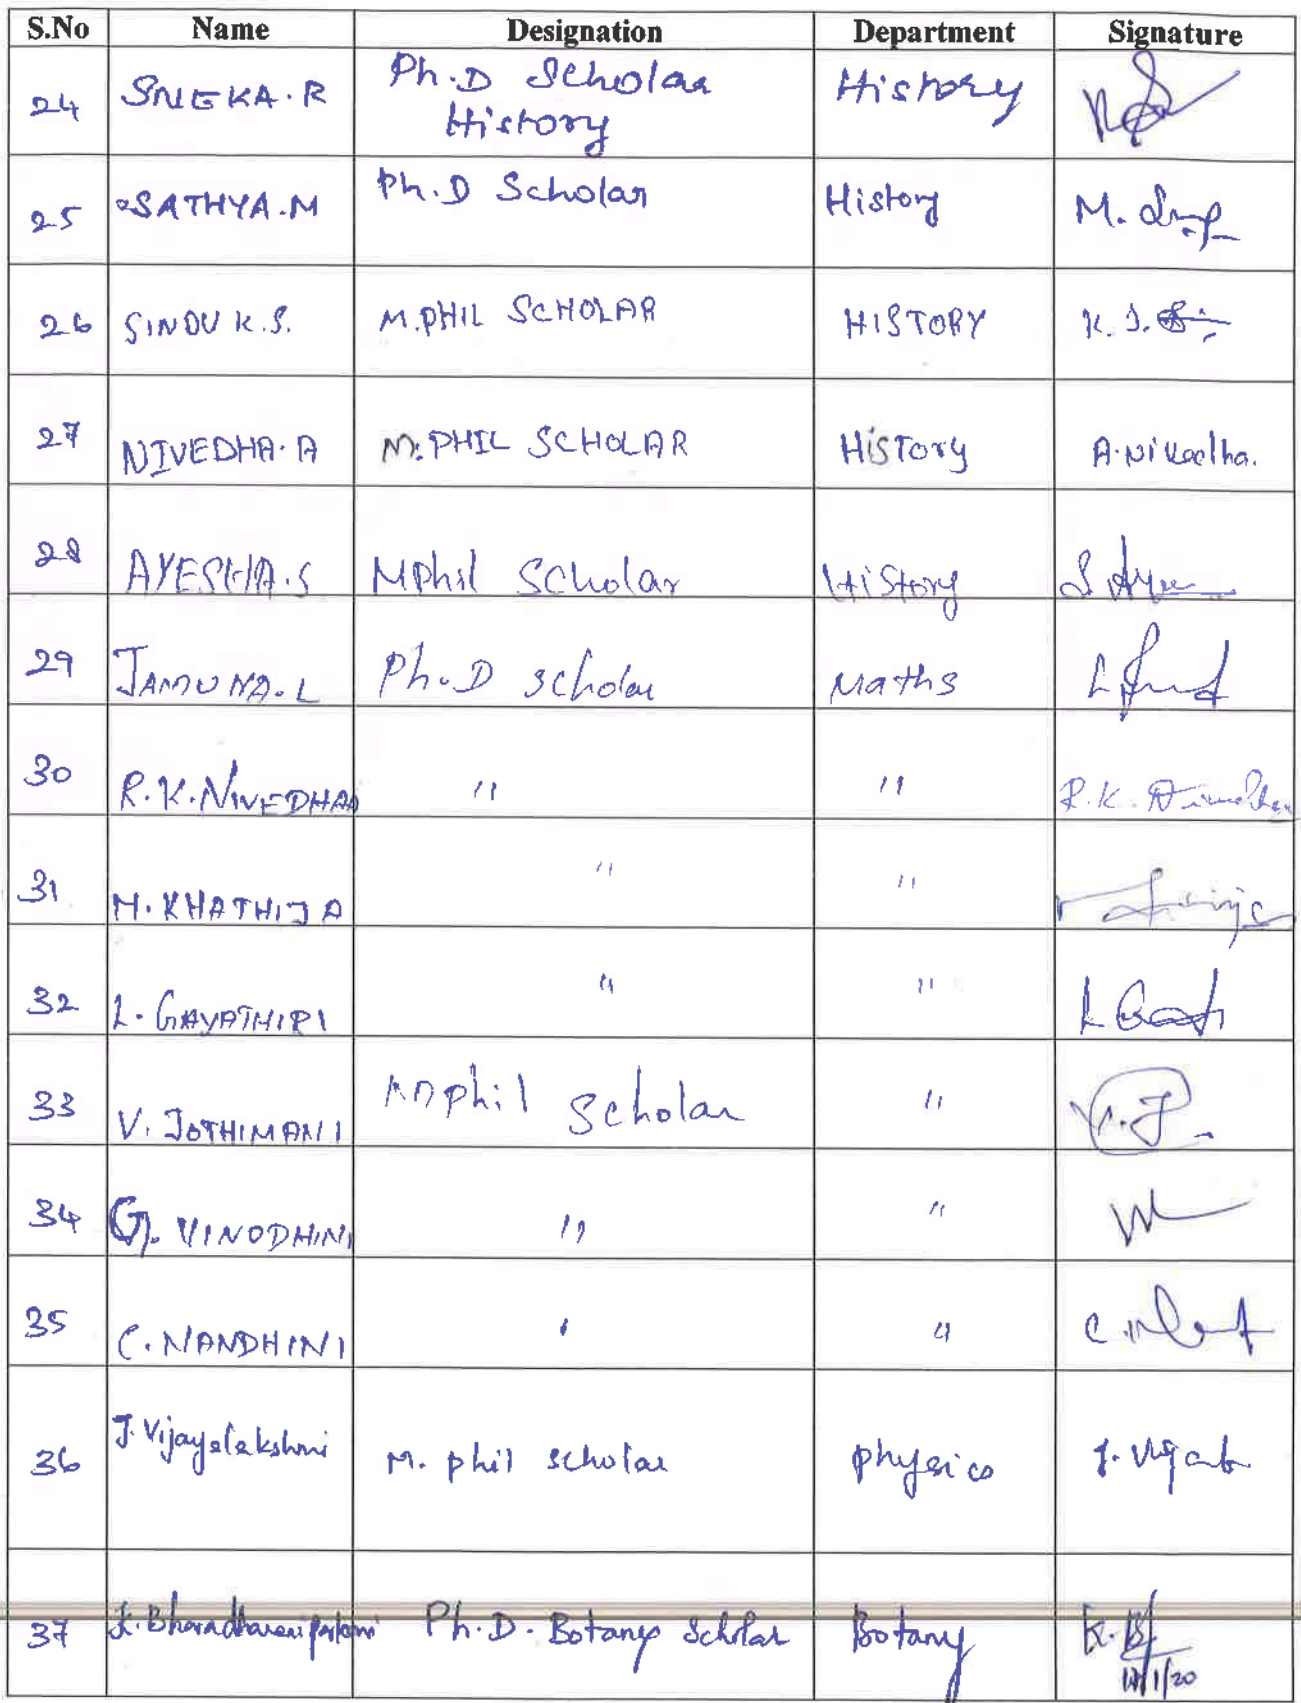 S.No Name Designation Department Signature
24 SNEKA.R Ph.D Scholar History
History
25 SATHYA.M Ph.D Scholar History M.
26 SINDU K.S. M.PHIL SCHOLAR HISTORY K.S.
27 NIVEDHA.A M.PHIL SCHOLAR HISTORY A.Nivedha.
28 AYESHA.S Mphil Scholar History S
29 JAMUNA.L Ph.D scholar Maths L
30 R.K.NIVEDHAA " " R.K.
31 M.KHATHIJA " "
32 L.GAYATHIRI " " L
33 V.JOTHIMANI Mphil Scholar " V.J.
34 G.VINODHINI " "
35 C.NANDHINI ' " C
36 J.Vijayalakshmi M.phil scholar physics J.
37 K. Ph.D. Botany Scholar Botany K.B